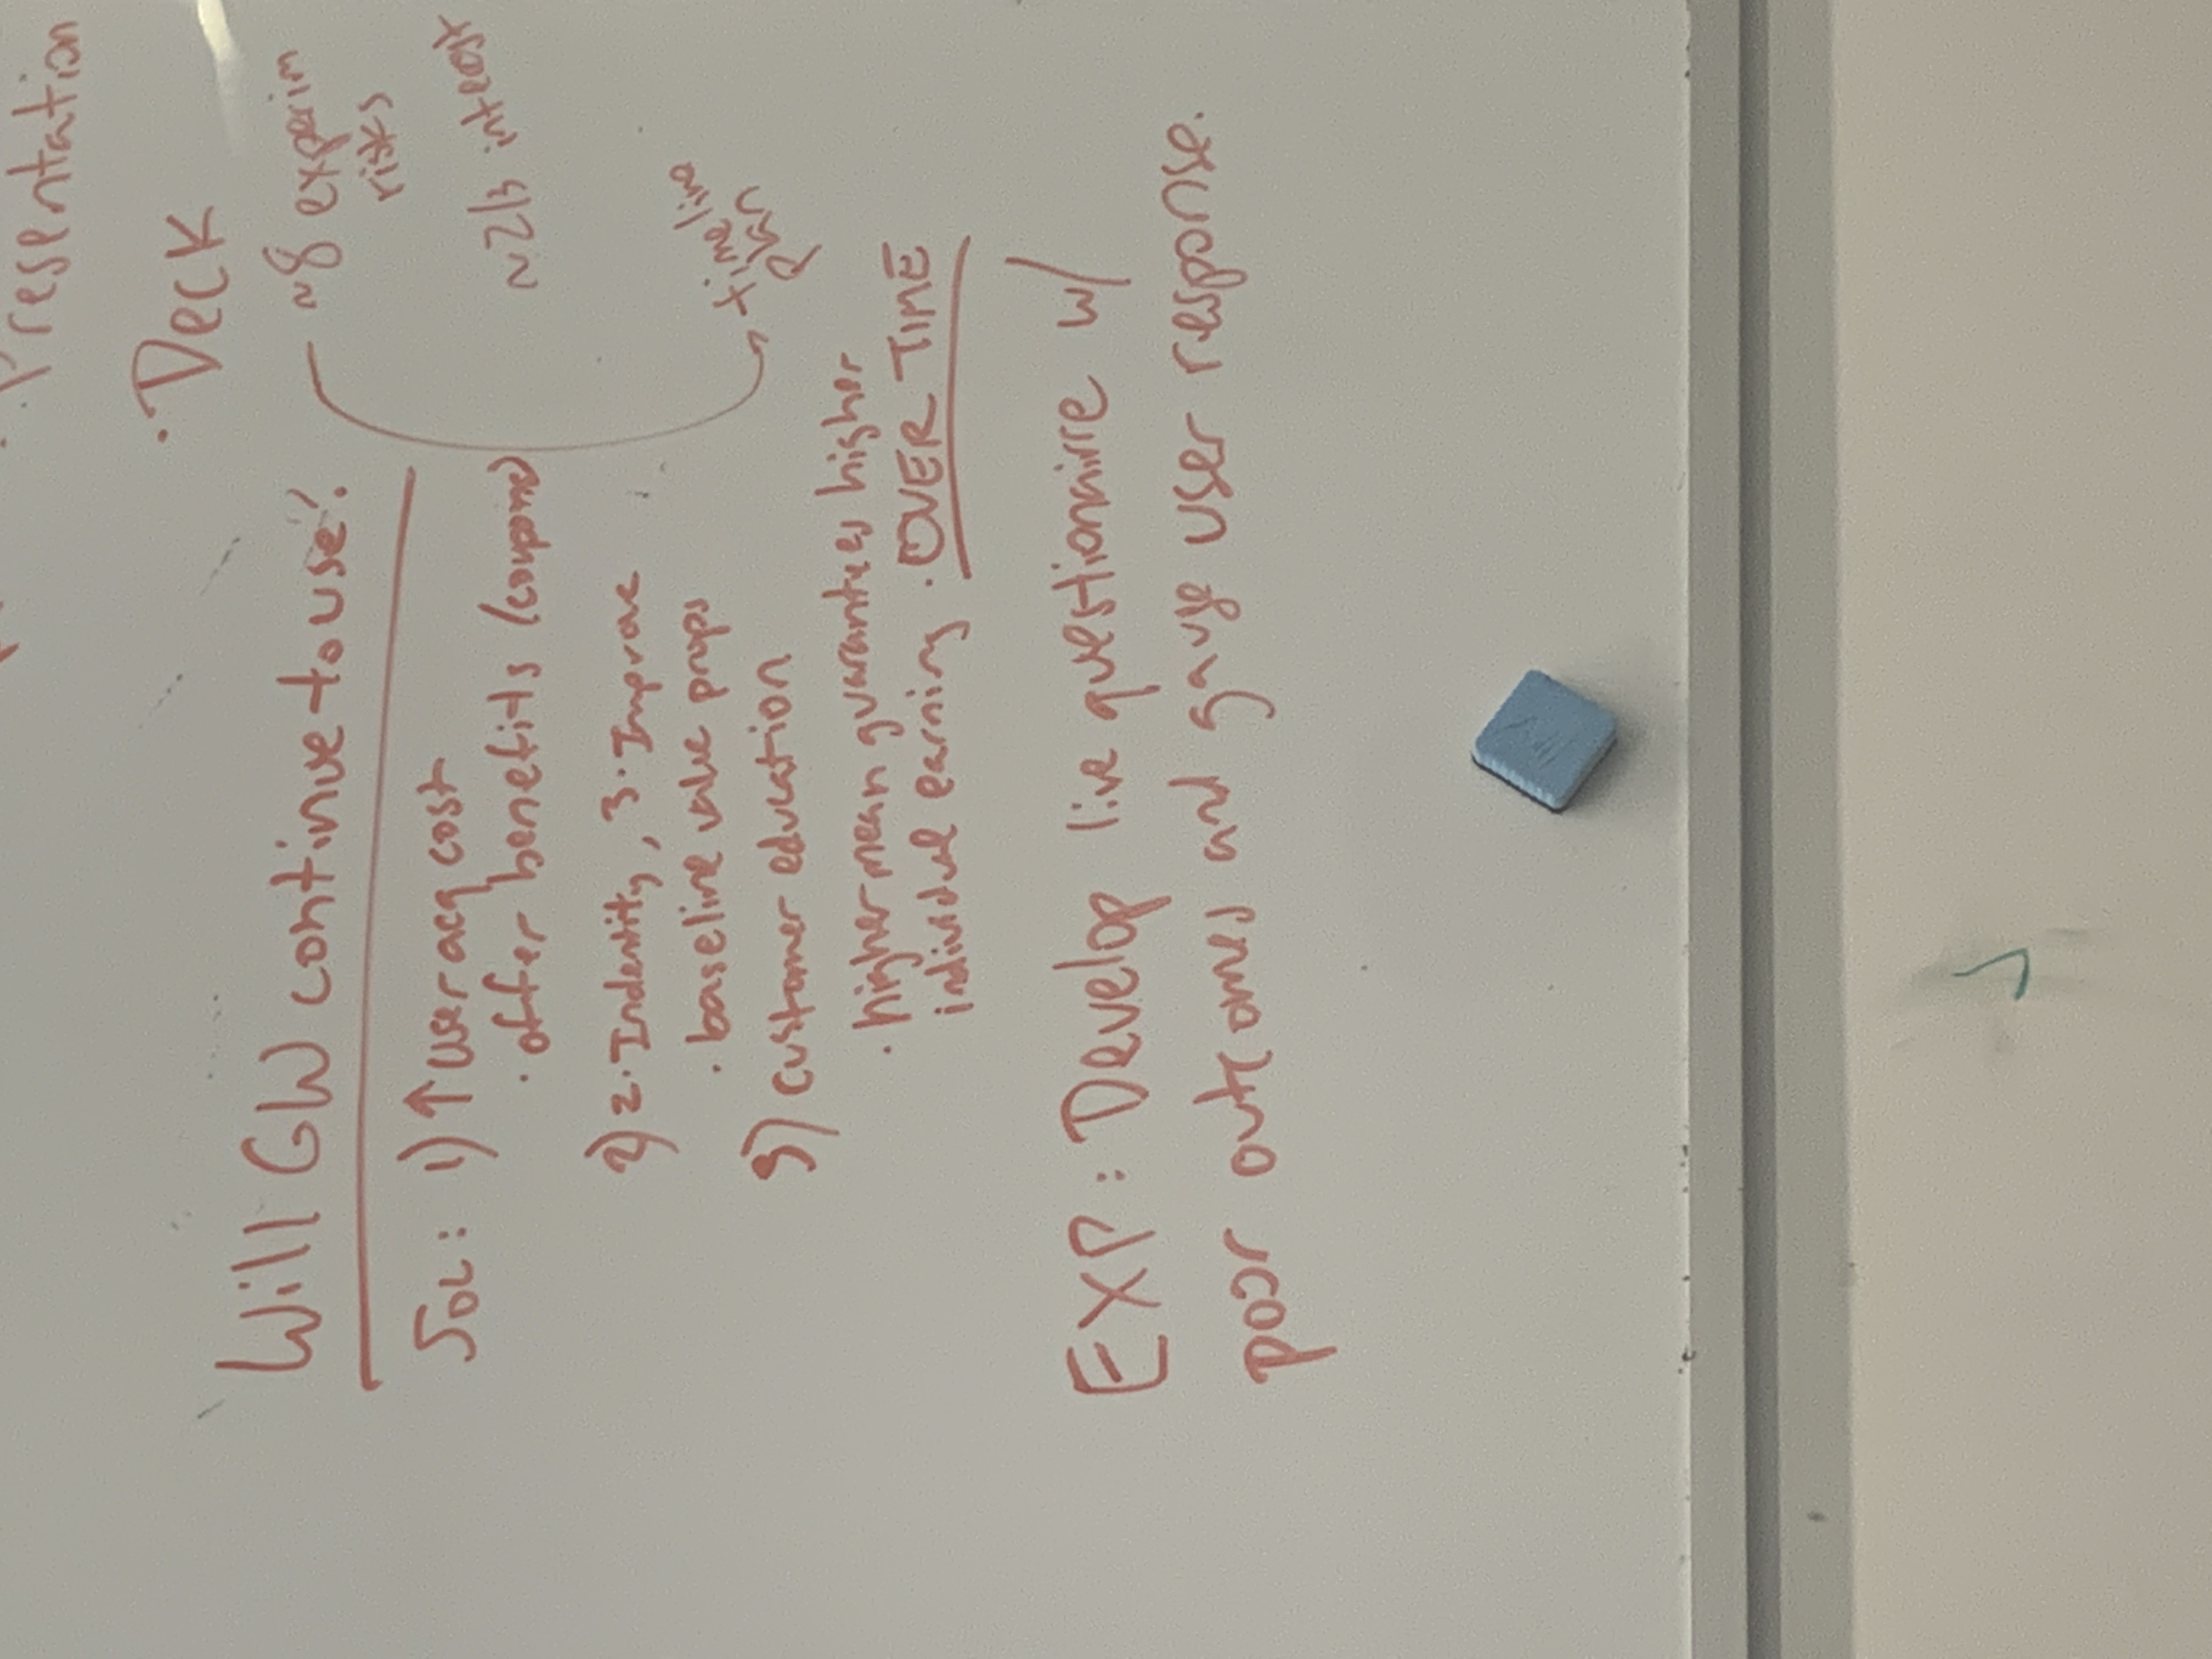 · Presentation
· Deck
Will GW continue to use?
~8 experim
risks
SOL: 1) ↑ user acq cost
· offer benefits (coupons)
~2/3 interest
2) 2. Indentity, 3. Improve
· baseline value props
timeline
plan
3) customer education
· higher mean guarantees higher
individual earning · OVER TIME
EXP: Develop live questionairre w/
poor outcomes and gauge user response.